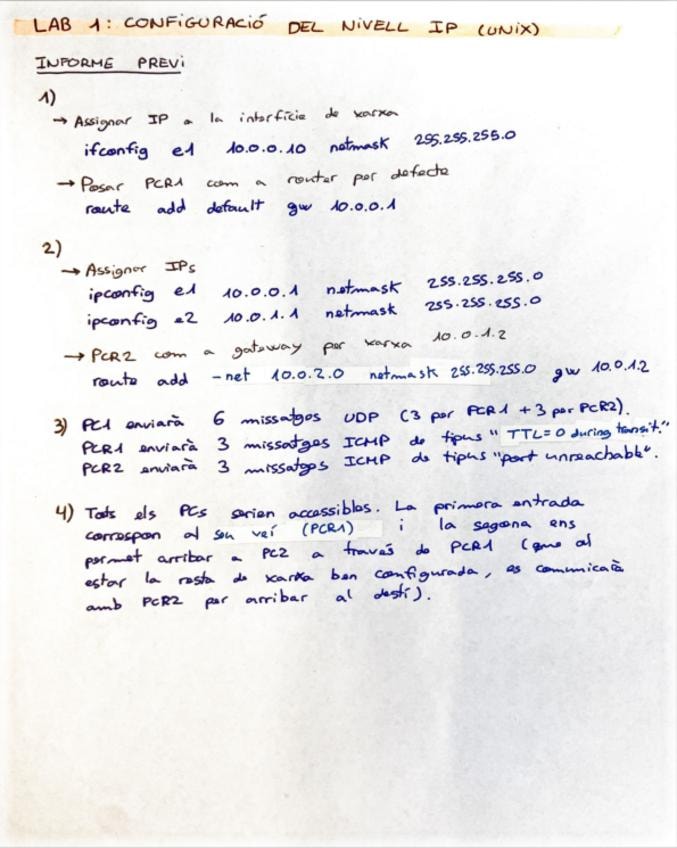 LAB 1: CONFIGURACIÓ DEL NIVELL IP (UNIX)
INFORME PREVI
1)
→ Assignar IP a la interfície de xarxa
ifconfig e1 10.0.0.10 netmask 255.255.255.0
→ Posar PCR1 com a router per defecte
route add default gw 10.0.0.1
2)
→ Assignar IPs
ipconfig e1 10.0.0.1 netmask 255.255.255.0
ipconfig e2 10.0.1.1 netmask 255.255.255.0
→ PCR2 com a gateway per xarxa 10.0.1.2
route add -net 10.0.2.0 netmask 255.255.255.0 gw 10.0.1.2
3) PC1 enviarà 6 missatges UDP (3 per PCR1 + 3 per PCR2).
PCR1 enviarà 3 missatges ICMP de tipus "TTL=0 during transit."
PCR2 enviarà 3 missatges ICMP de tipus "port unreachable".
4) Tots els PCs serien accessibles. La primera entrada
correspon al seu veí (PCR1) i la segona ens
permet arribar a PC2 a través de PCR1 (que al
estar la resta de xarxa ben configurada, es comunicarà
amb PCR2 per arribar al destí).